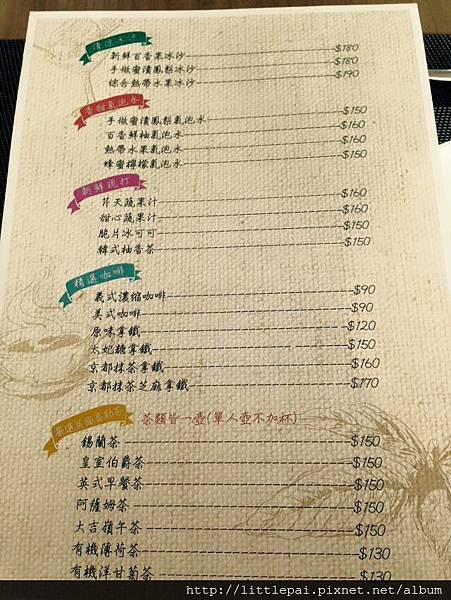 清涼冰沙
新鮮百香果冰沙 $180
手做蜜漬鳳梨冰沙 $180
綜合熱帶水果冰沙 $190
香甜氣泡水
手做蜜漬鳳梨氣泡水 $150
百香鮮柚氣泡水 $160
熱帶水果氣泡水 $160
蜂蜜檸檬氣泡水 $150
新鮮現打
芹天蔬果汁 $160
甜心蔬果汁 $160
脆片冰可可 $150
韓式柚香茶 $150
精選咖啡
義式濃缩咖啡 $90
美式咖啡 $90
原味拿鐵 $120
太妃糖拿鐵 $150
京都抹茶拿鐵 $160
京都抹茶芝麻拿鐵 $170
茶類皆一壺(單人壺不加杯)
錫蘭茶 $150
皇室伯爵茶 $150
英式早餐茶 $150
阿薩姆茶 $150
大吉嶺午茶 $150
有機薄荷茶 $130
有機洋甘菊茶 $130
http://littlepai.pixnet.net/album